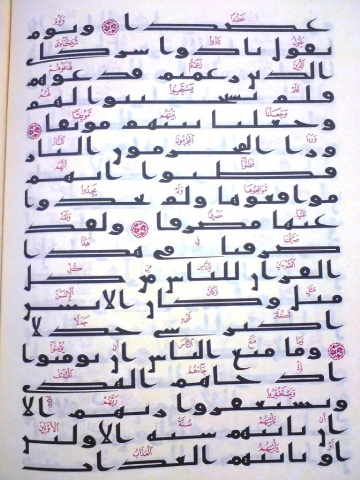 عضدا ۝ ويوم
يقول نادوا شركاى
الذين زعمتم فدعوهم
فلم يستجيبوا لهم
وجعلنا بينهم موبقا ۝
ورءا المجرمون النار
فظنوا انهم
مواقعوها ولم يجدوا
عنها مصرفا ۝ ولقد
صرفنا في هذا
القران للناس من كل
مثل وكان الانسن
اكثر شى جدلا
۝ وما منع الناس ان يومنوا
اذ جاهم الهدى
ويستغفروا ربهم الا
ان تاتيهم سنة الاولين
او ياتيهم العذاب